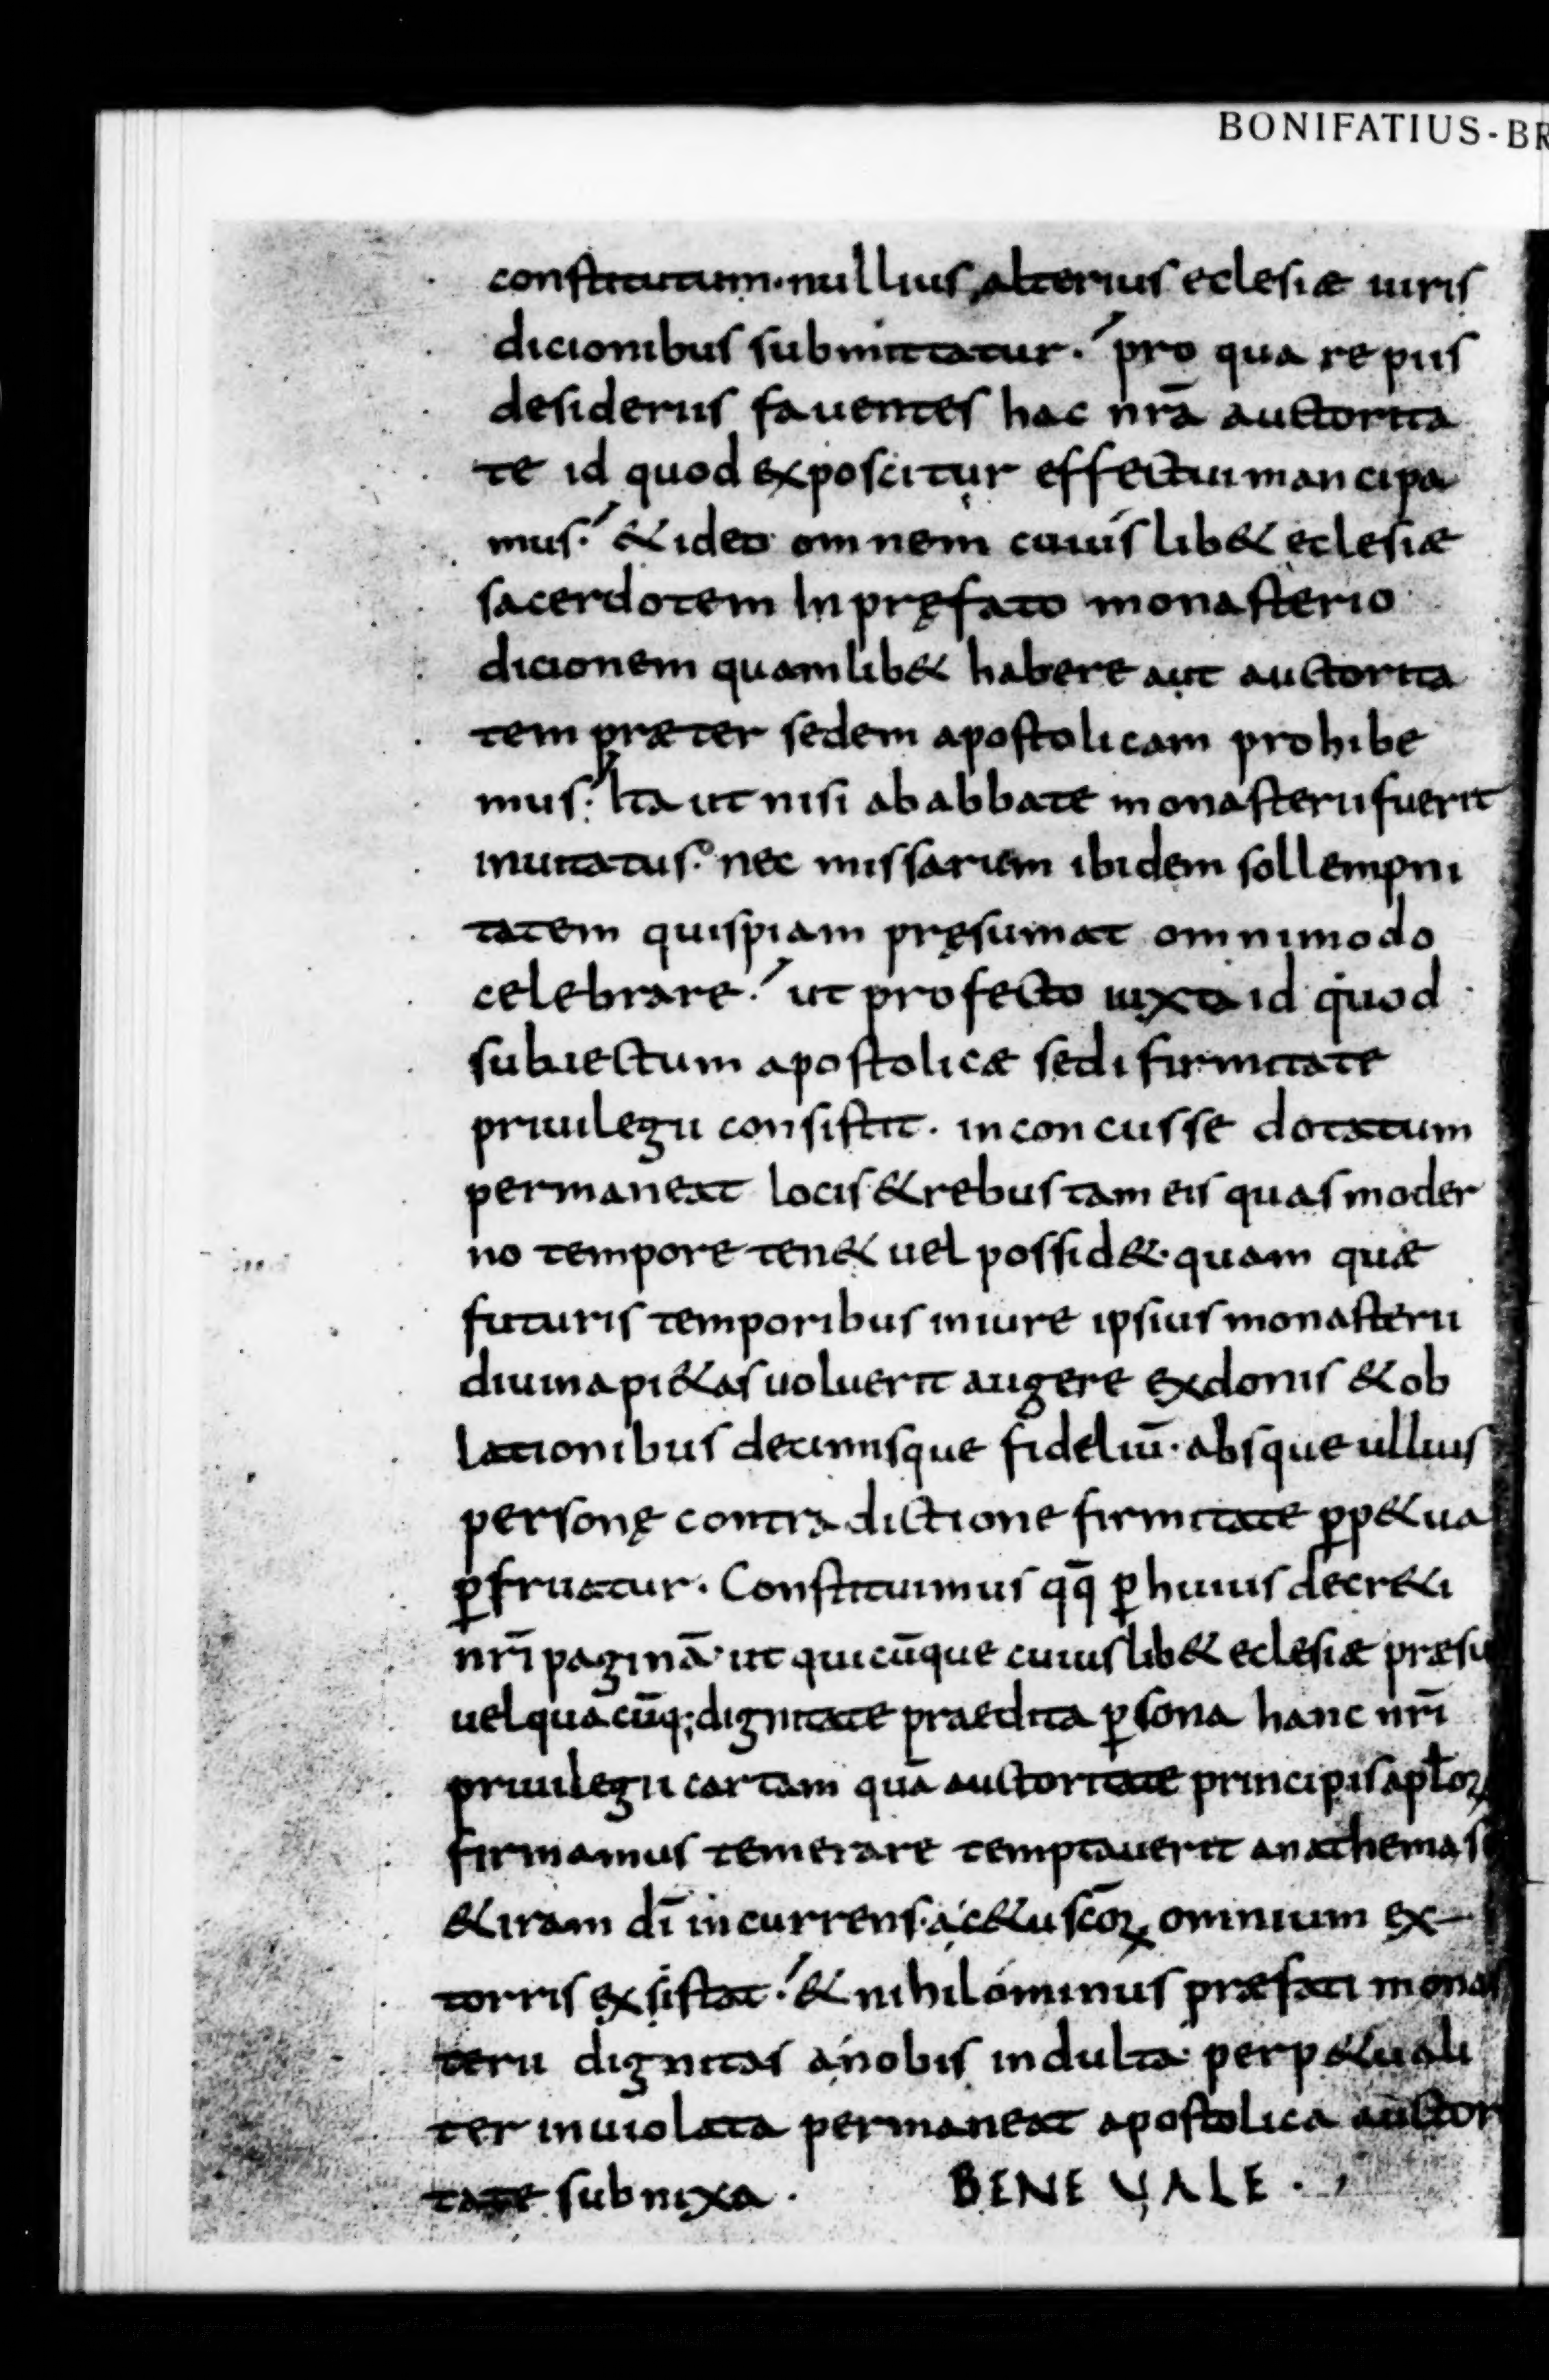 BONIFATIUS-BR
constitutum. nullius alterius eclesiæ iuris
dicionibus submittatur. pro qua re piis
desideriis fauentes hac nr̄a auctorita
te id quod exposcitur effectui mancipa
mus. & ideo omnem cuiuslib& eclesiæ
sacerdotem In pręfato monasterio
dicionem quamlib& habere aut auctorita
tem præter sedem apostolicam prohibe
mus. Ita ut nisi ab abbate monasterii fuerit
inuitatus. nec missarum ibidem sollempni
tatem quispiam pręsumat omnimodo
celebrare. ut profecto iuxta id quod
subiectum apostolicæ sedi firmitate
priuilegii consistit. inconcusse dotatum
permaneat locis & rebus tam eis quas moder
no tempore ten& uel possid&. quam quæ
futuris temporibus in iure ipsius monasterii
diuina pi&as uoluerit augere ex donis & ob
lationibus decimisque fidelиū. absque ullius
personę contradictione firmitate ꝑp&ua
ꝑfruatur. Constituimus qq̄ ꝑ huius decr&i
nr̄i paginā. ut quicūque cuiuslib& eclesiæ præsu
uel quacūq; dignitate praedita ꝑsona hanc nr̄i
priuilegii cartam quā auctoritate principis apł̄oꝝ
firmamus temerare temptauerit anathema s
& iram dī incurrens. a c&u sc̄oꝝ omnium ex
torris exsistat. & nihilominus præfati monas
terii dignitas a nobis indulta perp&uali
ter inuiolata permaneat apostolica auctori
tate subnixa. BENE VALE.